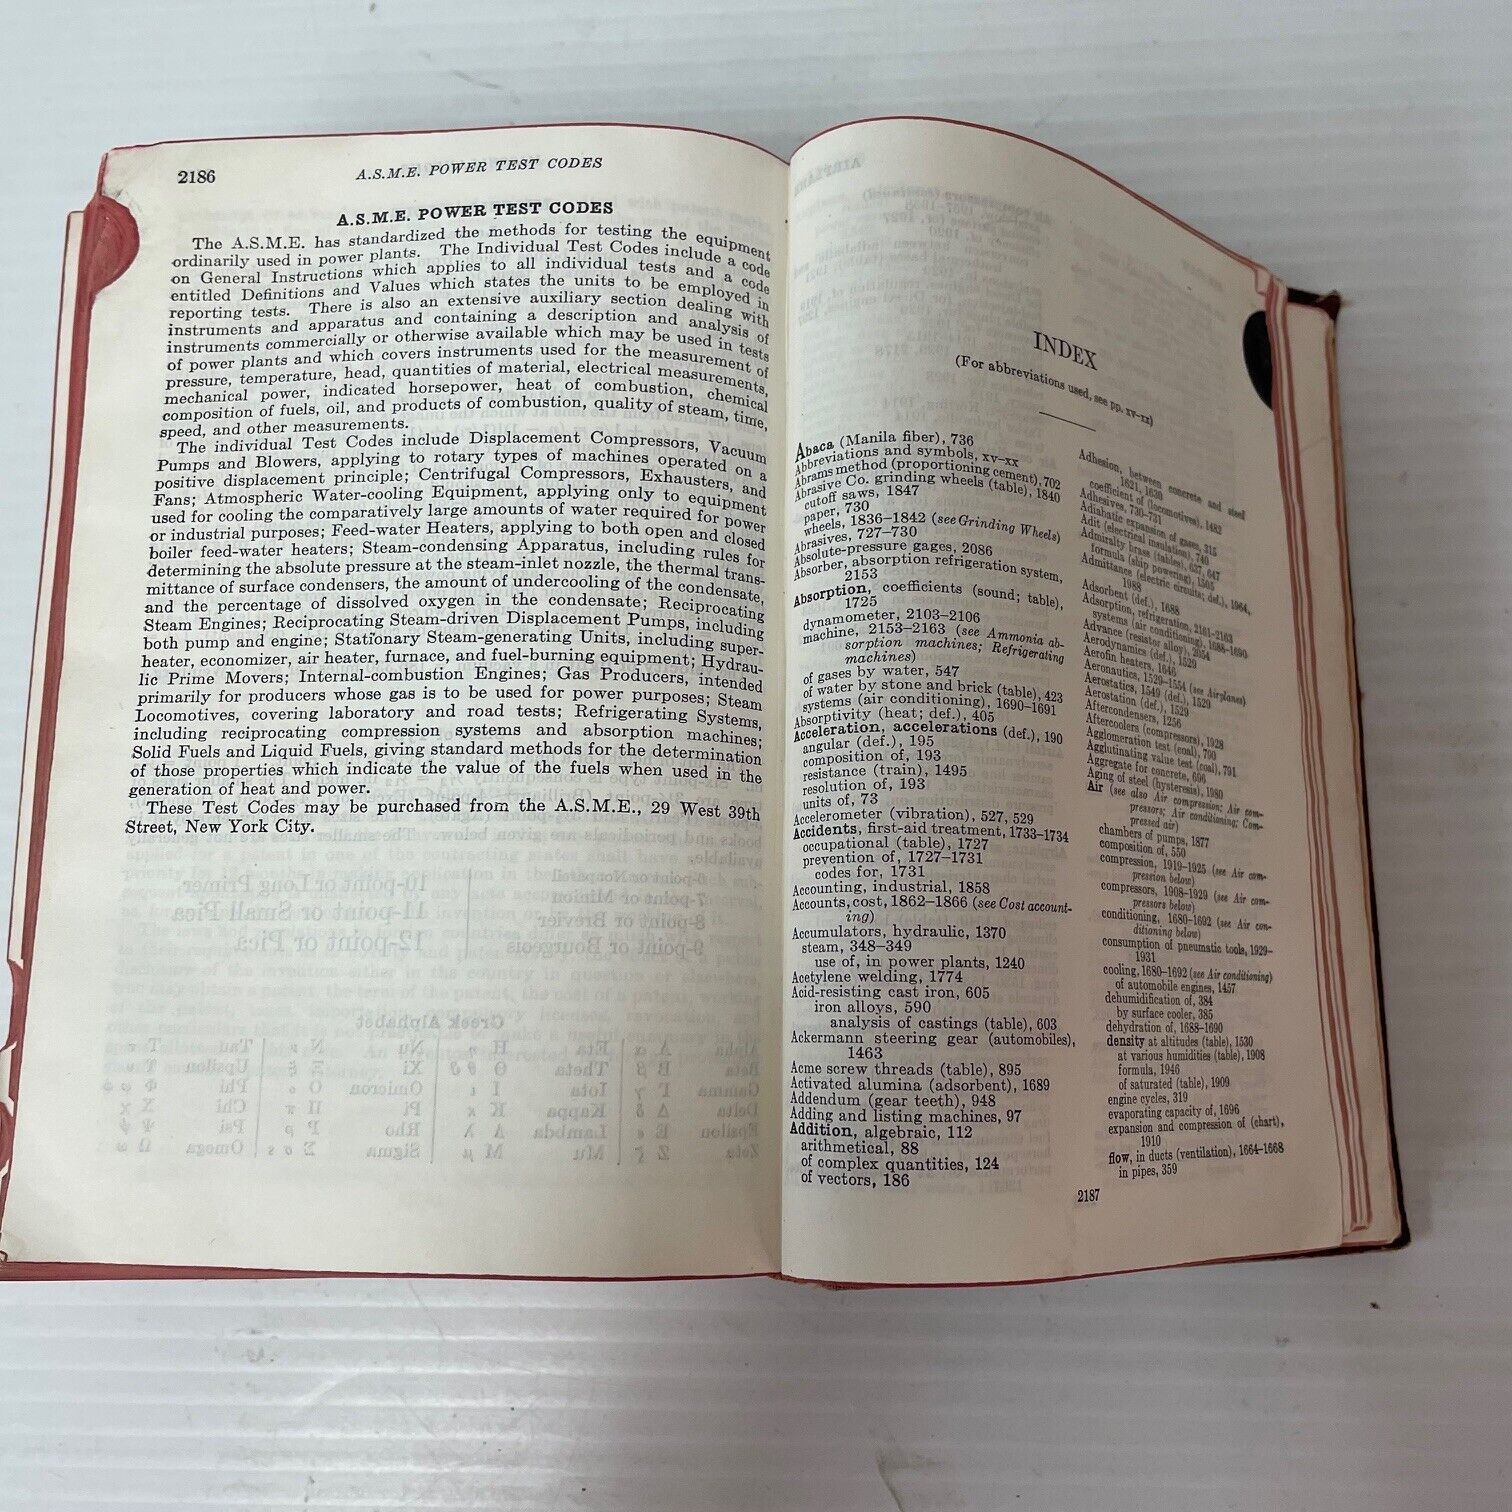 2186
A.S.M.E. POWER TEST CODES
A.S.M.E. POWER TEST CODES
The A.S.M.E. has standardized the methods for testing the equipment
ordinarily used in power plants. The Individual Test Codes include a code
on General Instructions which applies to all individual tests and a code
entitled Definitions and Values which states the units to be employed in
reporting tests. There is also an extensive auxiliary section dealing with
instruments and apparatus and containing a description and analysis of
instruments commercially or otherwise available which may be used in tests
of power plants and which covers instruments used for the measurement of
pressure, temperature, head, quantities of material, electrical measurements,
mechanical power, indicated horsepower, heat of combustion, chemical
composition of fuels, oil, and products of combustion, quality of steam, time,
speed, and other measurements.
The individual Test Codes include Displacement Compressors, Vacuum
Pumps and Blowers, applying to rotary types of machines operated on a
positive displacement principle; Centrifugal Compressors, Exhausters, and
Fans; Atmospheric Water-cooling Equipment, applying only to equipment
used for cooling the comparatively large amounts of water required for power
or industrial purposes; Feed-water Heaters, applying to both open and closed
boiler feed-water heaters; Steam-condensing Apparatus, including rules for
determining the absolute pressure at the steam-inlet nozzle, the thermal trans-
mittance of surface condensers, the amount of undercooling of the condensate,
and the percentage of dissolved oxygen in the condensate; Reciprocating
Steam Engines; Reciprocating Steam-driven Displacement Pumps, including
both pump and engine; Stationary Steam-generating Units, including super-
heater, economizer, air heater, furnace, and fuel-burning equipment; Hydrau-
lic Prime Movers; Internal-combustion Engines; Gas Producers, intended
primarily for producers whose gas is to be used for power purposes; Steam
Locomotives, covering laboratory and road tests; Refrigerating Systems,
including reciprocating compression systems and absorption machines;
Solid Fuels and Liquid Fuels, giving standard methods for the determination
of those properties which indicate the value of the fuels when used in the
generation of heat and power.
These Test Codes may be purchased from the A.S.M.E., 29 West 39th
Street, New York City.
INDEX
(For abbreviations used, see pp. xv-xx)
Abaca (Manila fiber), 736
Abbreviations and symbols, xv-xx
Abrams method (proportioning cement), 702
Abrasive Co. grinding wheels (table), 1840
cutoff saws, 1847
paper, 730
wheels, 1836-1842 (see Grinding Wheels)
Abrasives, 727-730
Absolute-pressure gages, 2086
Absorber, absorption refrigeration system,
2153
Absorption, coefficients (sound; table),
1725
dynamometer, 2103-2106
machine, 2153-2163 (see Ammonia ab-
sorption machines; Refrigerating
machines)
of gases by water, 547
of water by stone and brick (table), 423
systems (air conditioning), 1690-1691
Absorptivity (heat; def.), 405
Acceleration, accelerations (def.), 190
angular (def.), 195
composition of, 193
resistance (train), 1495
resolution of, 193
units of, 73
Accelerometer (vibration), 527, 529
Accidents, first-aid treatment, 1733-1734
occupational (table), 1727
prevention of, 1727-1731
codes for, 1731
Accounting, industrial, 1858
Accounts, cost, 1862-1866 (see Cost account-
ing)
Accumulators, hydraulic, 1370
steam, 348-349
use of, in power plants, 1240
Acetylene welding, 1774
Acid-resisting cast iron, 605
iron alloys, 590
analysis of castings (table), 603
Ackermann steering gear (automobiles),
1463
Acme screw threads (table), 895
Activated alumina (adsorbent), 1689
Addendum (gear teeth), 948
Adding and listing machines, 97
Addition, algebraic, 112
arithmetical, 88
of complex quantities, 124
of vectors, 186
Adhesion, between concrete and steel
1621, 1630
coefficient of (locomotives), 1482
Adhesives, 730-731
Adiabatic expansion of gases, 315
Adit (electrical insulation), 740
Admiralty brass (tables), 637, 647
formula (ship powering), 1505
Admittance (electric circuits; def.), 1964,
1988
Adsorbent (def.), 1688
Adsorption, refrigeration, 2161-2163
systems (air conditioning), 1688-1690
Advance (resistor alloy), 2054
Aerodynamics (def.), 1529
Aerofin heaters, 1646
Aeronautics, 1529-1554 (see Airplanes)
Aerostatics, 1549 (def.), 1529
Aerostation (def.), 1529
Aftercondensers, 1256
Aftercoolers (compressors), 1928
Agglomeration test (coal), 790
Agglutinating value test (coal), 791
Aggregate for concrete, 696
Aging of steel (hysteresis), 1980
Air (see also Air compression; Air com-
pressors; Air conditioning; Com-
pressed air)
chambers of pumps, 1877
composition of, 550
compression, 1919-1925 (see Air com-
pression below)
compressors, 1908-1929 (see Air com-
pressors below)
conditioning, 1680-1692 (see Air con-
ditioning below)
consumption of pneumatic tools, 1929-
1931
cooling, 1680-1692 (see Air conditioning)
of automobile engines, 1457
dehumidification of, 384
by surface cooler, 385
dehydration of, 1688-1690
density at altitudes (table), 1530
at various humidities (table), 1908
formula, 1946
of saturated (table), 1909
engine cycles, 319
evaporating capacity of, 1696
expansion and compression of (chart),
1910
flow, in ducts (ventilation), 1664-1668
in pipes, 359
2187